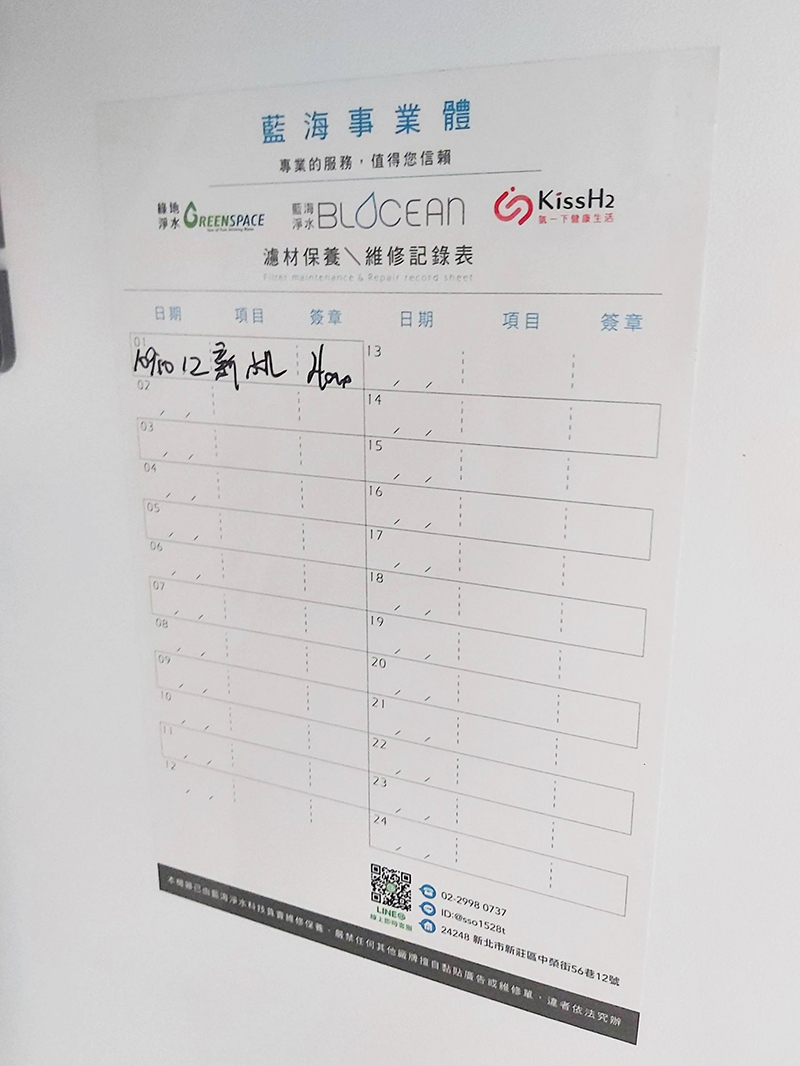 藍海事業體
專業的服務，值得您信賴
綠地淨水 GREENSPACE 藍海淨水 BLOCEAN KissH2 氫一下健康生活
濾材保養＼維修記錄表
Filter maintenance & Repair record sheet
日期 項目 簽章 日期 項目 簽章
01 新机
02 / /
03 / /
04 / /
05 / /
06 / /
07 / /
08 / /
09 / /
10 / /
11 / /
12 / /
13 / /
14 / /
15 / /
16 / /
17 / /
18 / /
19 / /
20 / /
21 / /
22 / /
23 / /
24 / /
LINE@
線上即時客服
02-2998 0737
ID:@sso1528t
24248 新北市新莊區中榮街56巷12號
本機器已由藍海淨水科技負責維修保養，嚴禁任何其他廠牌擅自黏貼廣告或維修單，違者依法究辦